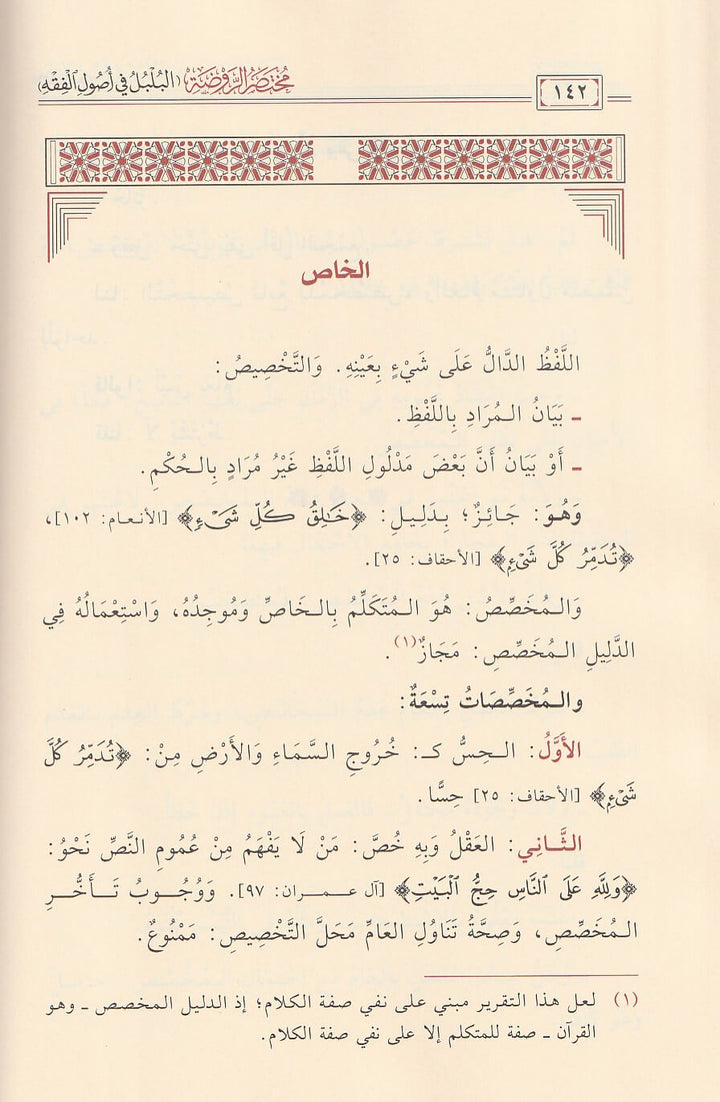 مُخْتَصَرُ الرَّوْضَةِ (البُلْبُلُ فِي أُصُولِ الْفِقْهِ)
١٤٢
الخاص
اللَّفْظُ الدَّالُّ عَلَى شَيْءٍ بِعَيْنِهِ. وَالتَّخْصِيصُ:
ـ بَيَانُ المُرَادِ بِاللَّفْظِ.
ـ أَوْ بَيَانُ أَنَّ بَعْضَ مَدْلُولِ اللَّفْظِ غَيْرُ مُرَادٍ بِالحُكْمِ.
وَهُوَ: جَائِزٌ؛ بِدَلِيلِ: ﴿خَٰلِقُ كُلِّ شَىْءٍ﴾ [الأنعام: ١٠٢]،
﴿تُدَمِّرُ كُلَّ شَىْءٍ﴾ [الأحقاف: ٢٥].
وَالمُخَصِّصُ: هُوَ المُتَكَلِّمُ بِالخَاصِّ وَمُوجِدُهُ، وَاسْتِعْمَالُهُ فِي
الدَّلِيلِ المُخَصِّصِ: مَجَازٌ(١).
والمُخَصِّصَاتُ تِسْعَةٌ:
الأَوَّلُ: الحِسُّ كـ: خُرُوجِ السَّمَاءِ وَالأَرْضِ مِنْ: ﴿تُدَمِّرُ كُلَّ
شَىْءٍ﴾ [الأحقاف: ٢٥] حِسًّا.
الثَّانِي: العَقْلُ وَبِهِ خُصَّ: مَنْ لَا يَفْهَمُ مِنْ عُمُومِ النَّصِّ نَحْوُ:
﴿وَلِلَّهِ عَلَى ٱلنَّاسِ حِجُّ ٱلْبَيْتِ﴾ [آل عمران: ٩٧]. وَوُجُوبُ تَأَخُّرِ
المُخَصِّصِ، وَصِحَّةُ تَنَاوُلِ العَامِّ مَحَلَّ التَّخْصِيصِ: مَمْنُوعٌ.
(١) لعل هذا التقرير مبني على نفي صفة الكلام؛ إذ الدليل المخصص ـ وهو
القرآن ـ صفة للمتكلم إلا على نفي صفة الكلام.